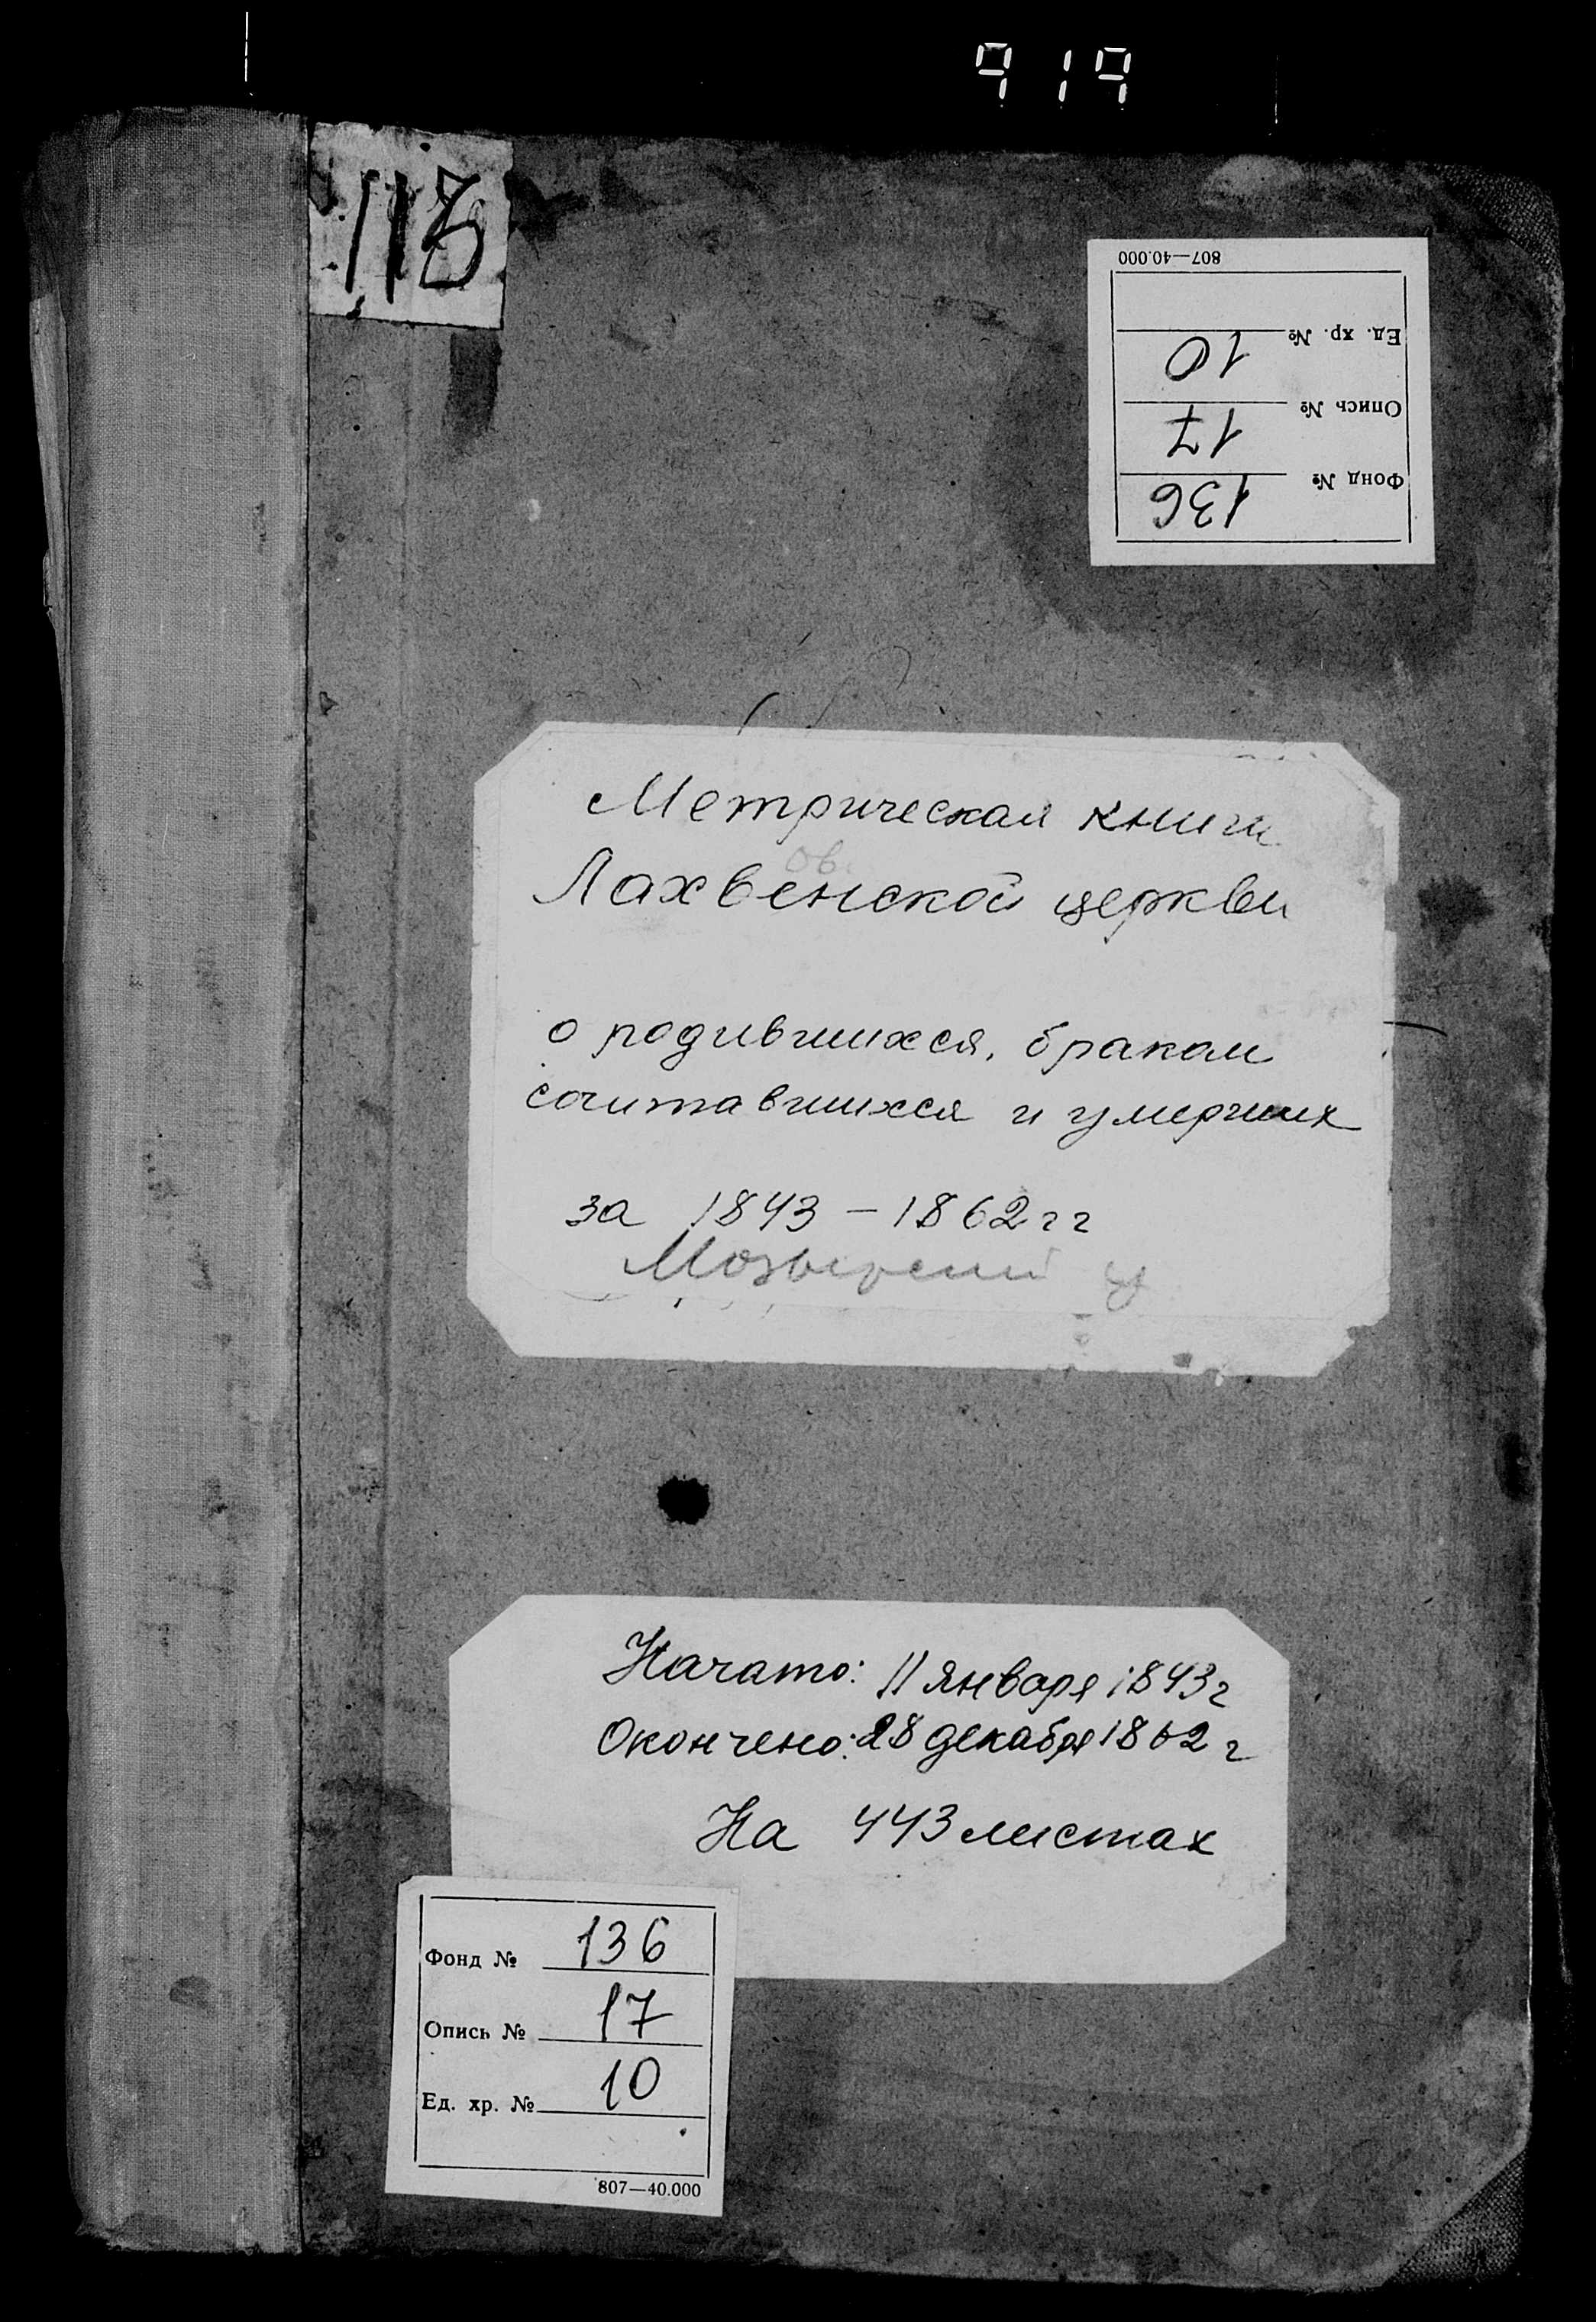 919
113
807—40.000
Ед. хр. № 10
Опись № 17
Фонд № 136
Метрическая книга
ов
Лахвенской церкви
о родившихся, браком
сочитавшихся и умерших
за 1843 – 1862 гг
Мозырский у
Начато: 11 января 1843 г
Окончено: 28 декабря 1862 г
На 443 листах
Фонд № 136
Опись № 17
Ед. хр. № 10
807—40.000